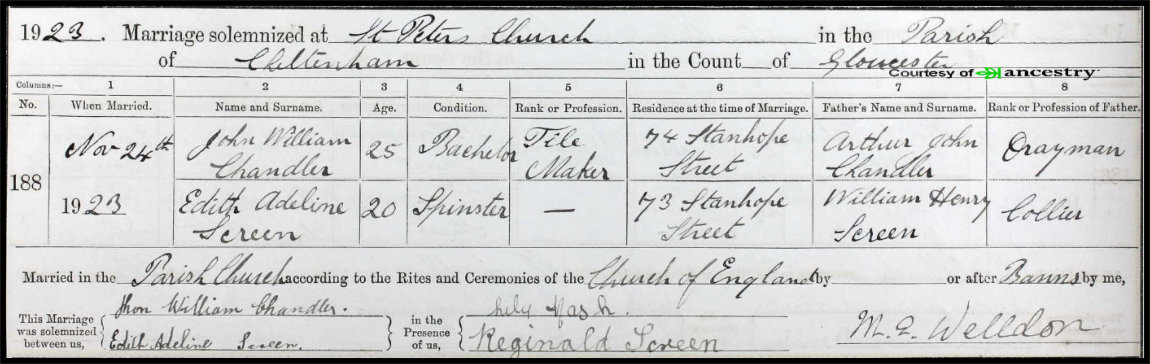 1923. Marriage solemnized at St Peters Church in the Parish
of Cheltenham in the Count of Gloucester
Courtesy of ancestry
Columns:— 1 2 3 4 5 6 7 8
No. When Married. Name and Surname. Age. Condition. Rank or Profession. Residence at the time of Marriage. Father's Name and Surname. Rank or Profession of Father.
188 Nov 24th John William Chandler 25 Bachelor Tile Maker 74 Stanhope Street Arthur John Chandler Drayman
1923 Edith Adeline Screen 20 Spinster — 73 Stanhope Street William Henry Screen Collier
Married in the Parish Church according to the Rites and Ceremonies of the Church of England by or after Banns by me,
This Marriage was solemnized between us, Jhon William Chandler. in the Presence of us, Nash.
Edith Adeline Screen. Reginald Screen
M. E. Welldon